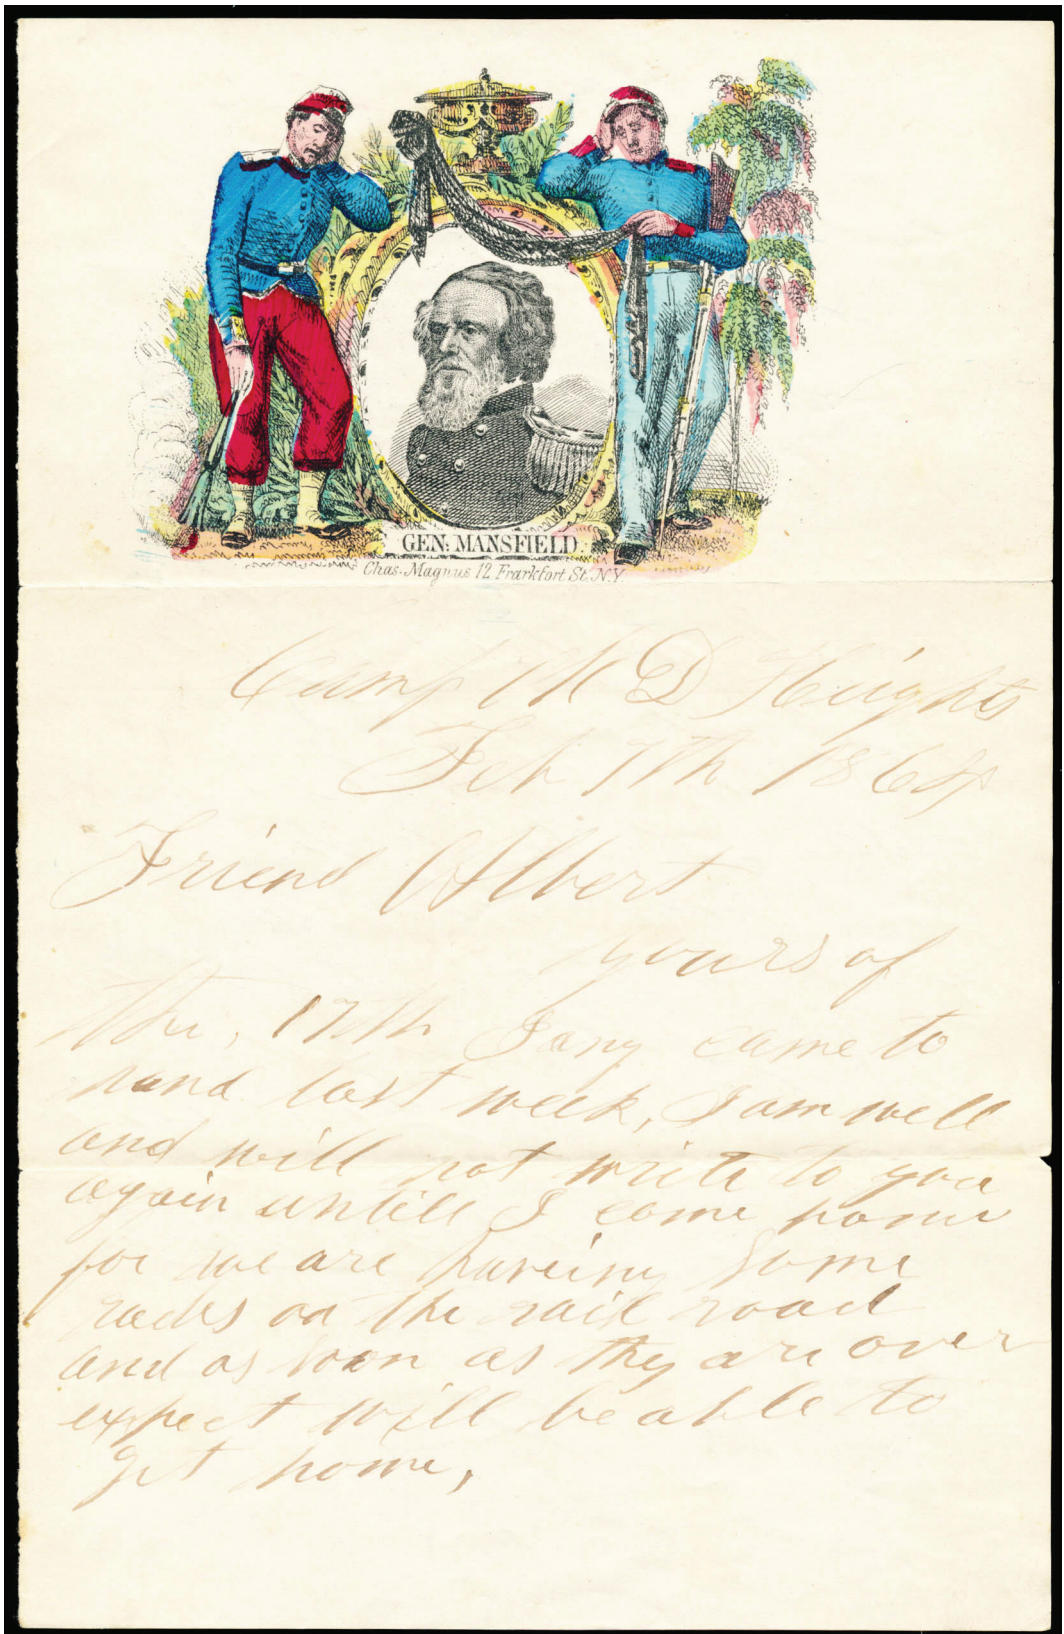 GEN: MANSFIELD
Chas. Magnus 12 Frankfort St. N.Y
Camp M D Heights
Feb 7th 1864
Friend Albert
yours of
the, 17th Jany came to
hand last week, I am well
and will not write to you
again untill I come home
for we are haveing some
rades on the rail road
and as soon as they are over
expect will be able to
get home,